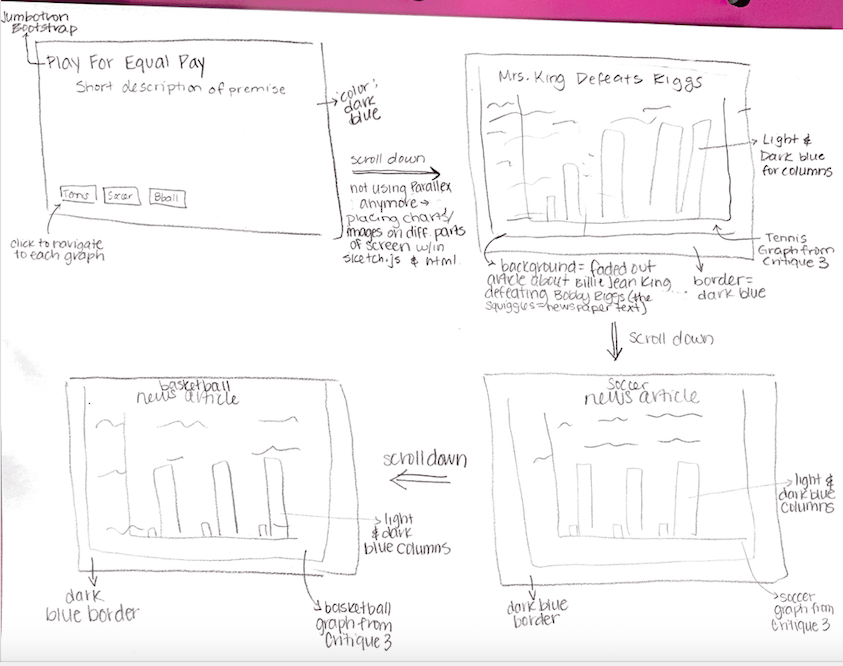 Jumbotron
Bootstrap
Play For Equal Pay
Short description of premise
color:
dark
blue
Soccer
Bball
click to navigate
to each graph
scroll down
not using Parallex
anymore →
placing charts/
images on diff. parts
of screen w/in
sketch.js & html
Mrs. King Defeats Riggs
Light &
Dark blue
for columns
Tennis
Graph from
Critique 3
background = faded out
article about Billie Jean King
defeating Bobby Riggs (the
squiggles = newspaper text)
border =
dark blue
scroll down
soccer
news article
light &
dark blue
columns
dark blue
border
soccer
graph from
Critique 3
scroll down
basketball
news article
light
& dark
blue columns
dark
blue border
basketball
graph from
Critique 3